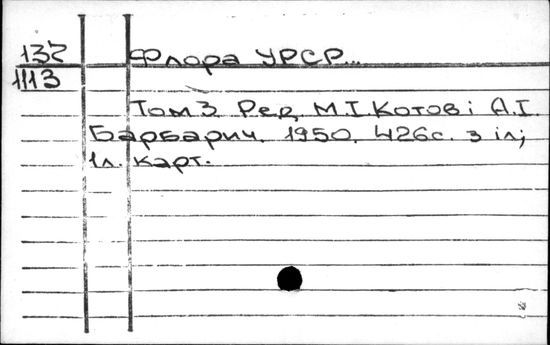 137 Флора УРСР...
1113
Том 3 Ред. М.І. Котов і А.І.
Барбарич. 1950. 426с. з іл;
1л. карт.